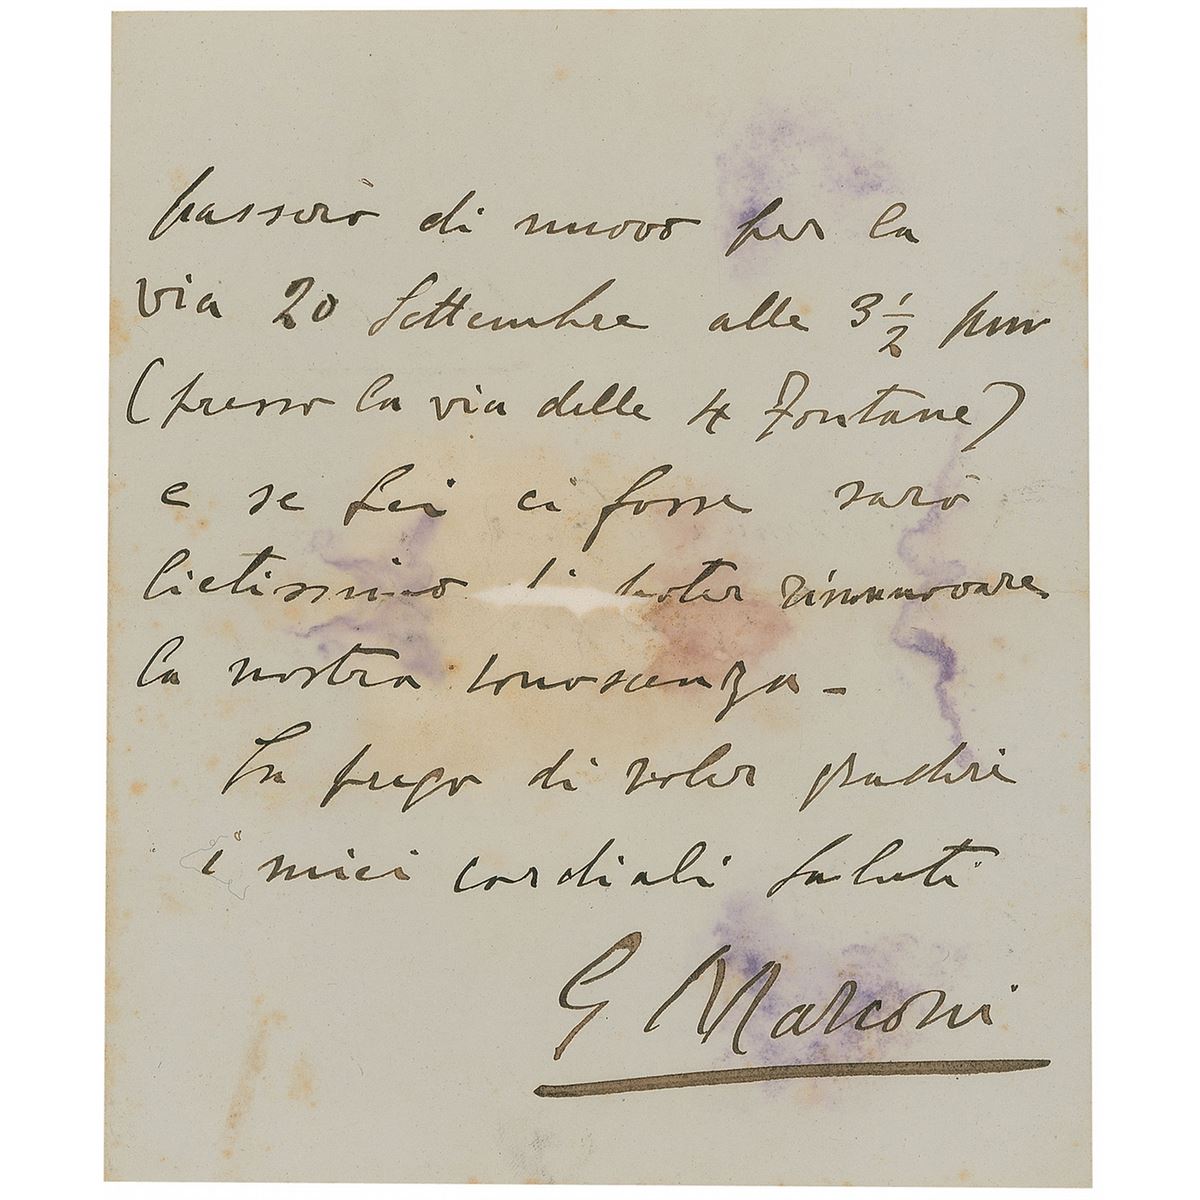 passerò di nuovo per la
via 20 Settembre alle 3 1/2 pm
(presso la via delle 4 Fontane)
e se Lei ci fosse sarò
lietissimo di poter rinnuovare
la nostra conoscenza -
La prego di voler gradire
i miei cordiali saluti
G Marconi